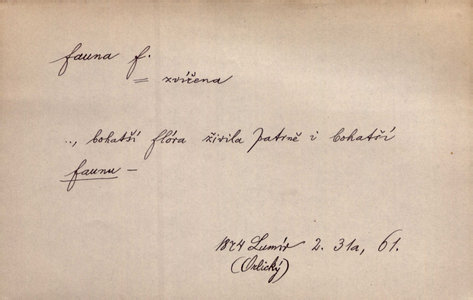 fauna f.
= zvířena
.., bohatší flóra živila patrně i bohatší
faunu –
1874 Lumír 2. 31a, 61.
(Orlický)